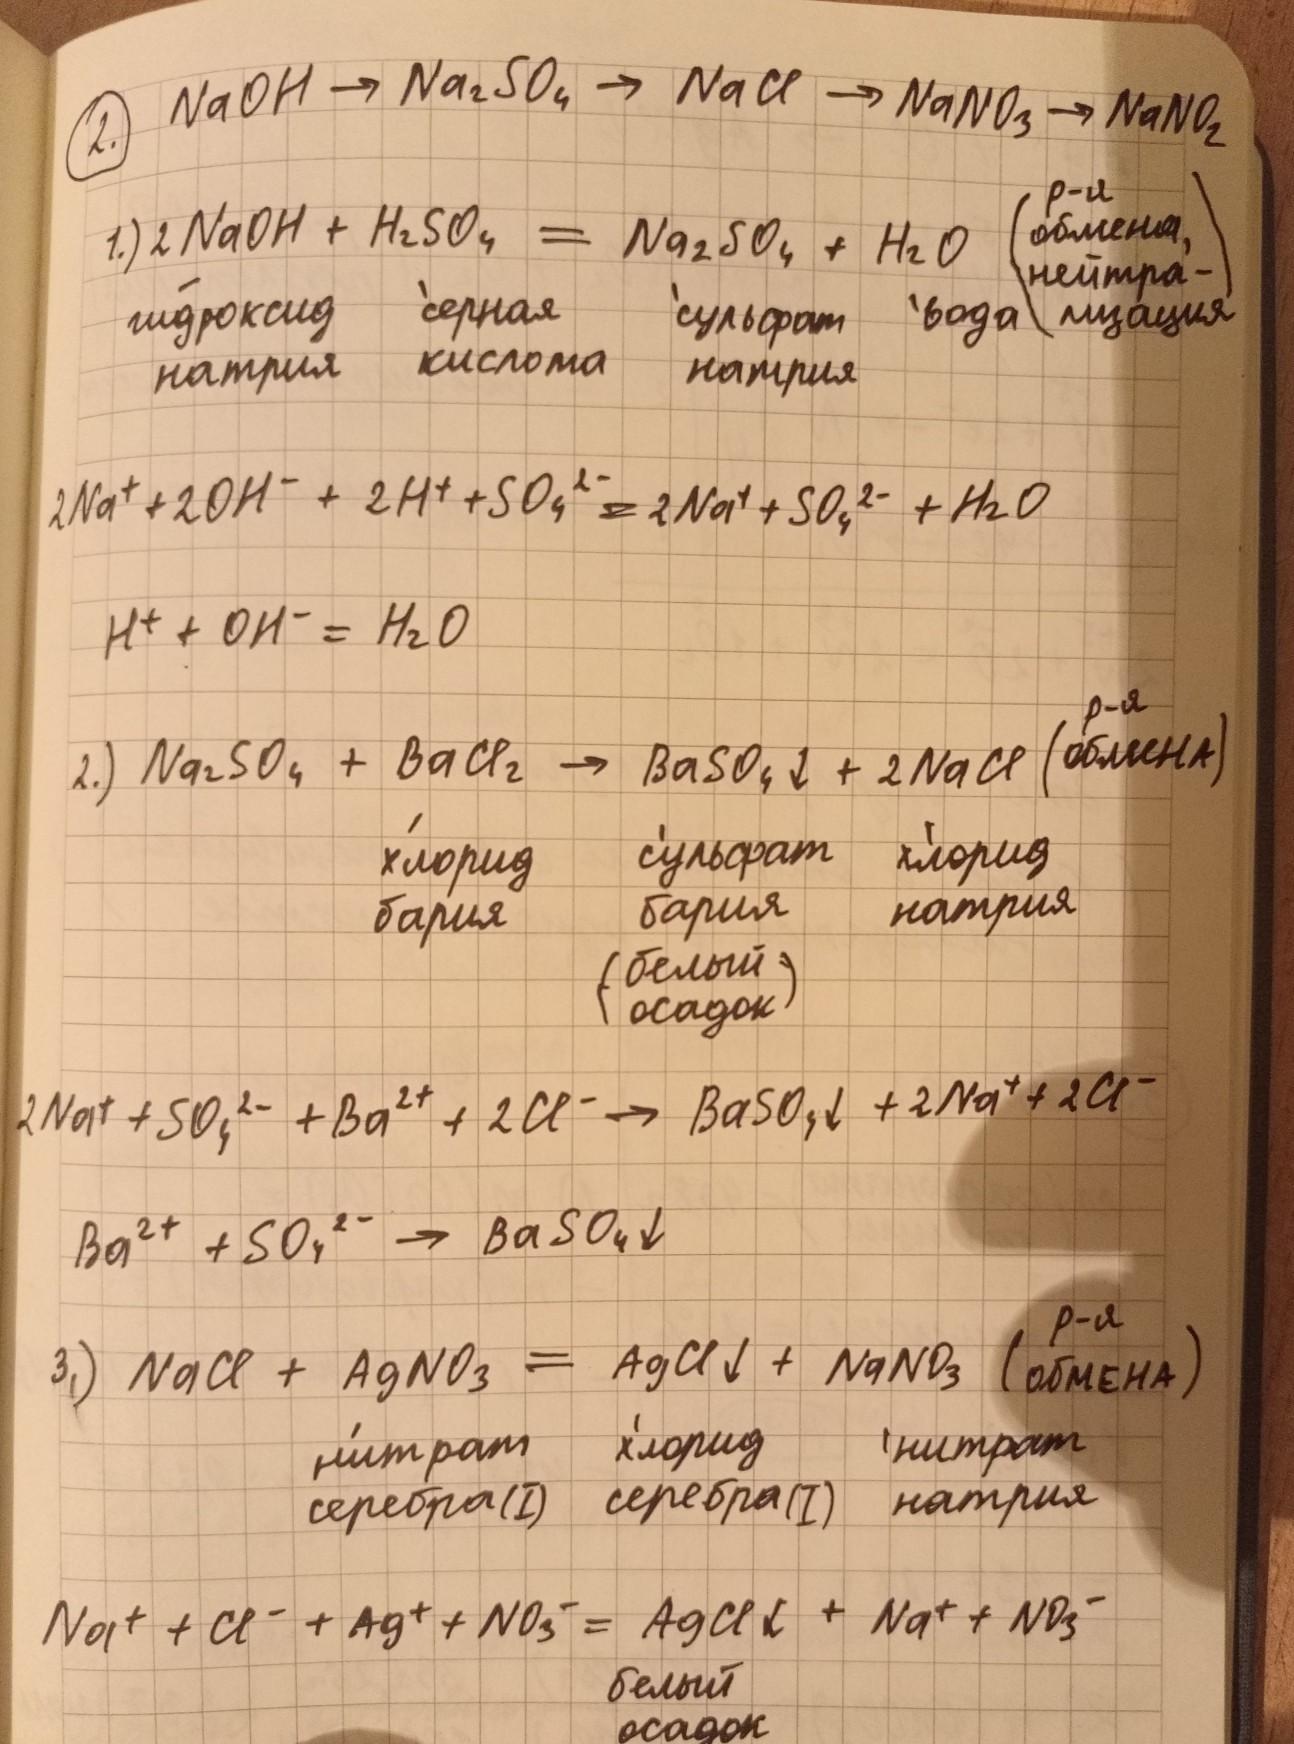 2. NaOH → Na₂SO₄ → NaCl → NaNO₃ → NaNO₂
1.) 2NaOH + H₂SO₄ = Na₂SO₄ + H₂O (р-я обмена, нейтра-лизация)
гидроксид натрия
серная кислота
сульфат натрия
вода
2Na⁺ + 2OH⁻ + 2H⁺ + SO₄²⁻ = 2Na⁺ + SO₄²⁻ + H₂O
H⁺ + OH⁻ = H₂O
2.) Na₂SO₄ + BaCl₂ → BaSO₄↓ + 2NaCl (р-я обмена)
хлорид бария
сульфат бария
(белый осадок)
хлорид натрия
2Na⁺ + SO₄²⁻ + Ba²⁺ + 2Cl⁻ → BaSO₄↓ + 2Na⁺ + 2Cl⁻
Ba²⁺ + SO₄²⁻ → BaSO₄↓
3.) NaCl + AgNO₃ = AgCl↓ + NaNO₃ (р-я обмена)
нитрат серебра(I)
хлорид серебра(I)
нитрат натрия
Na⁺ + Cl⁻ + Ag⁺ + NO₃⁻ = AgCl↓ + Na⁺ + NO₃⁻
белый
осадок